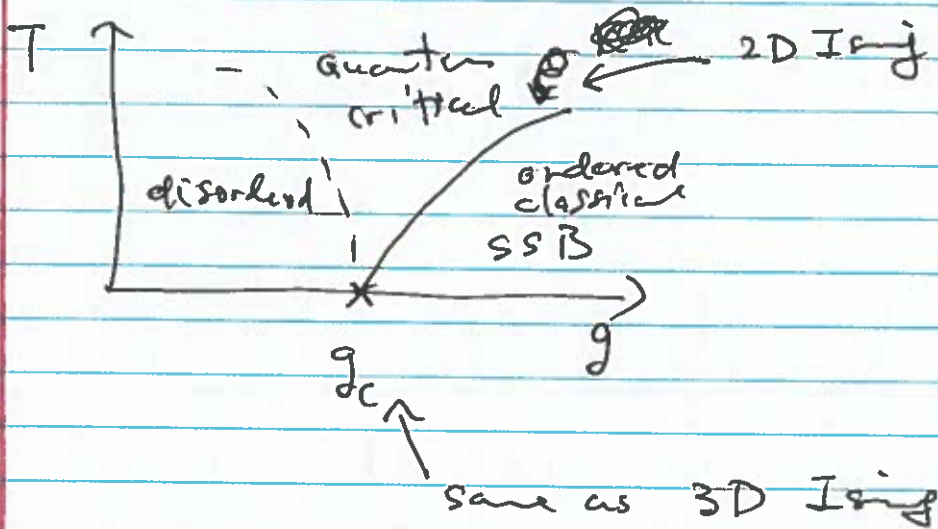 T
Quantum
critical
2D Ising
disorderd
ordered
classical
SSB
g
gc
same as 3D Ising